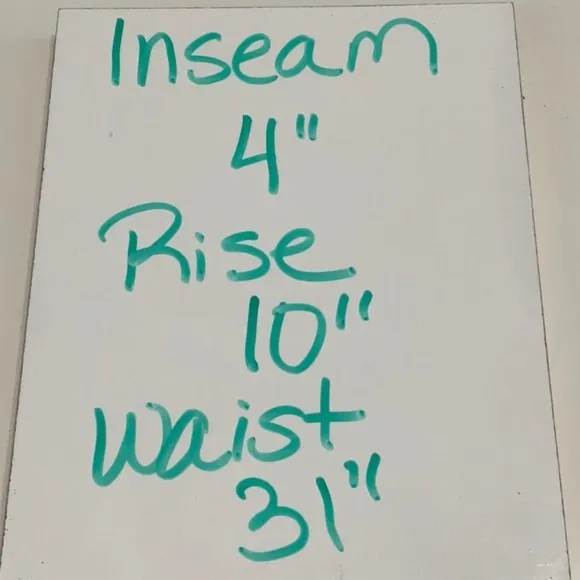 Inseam
4"
Rise
10"
Waist
31"